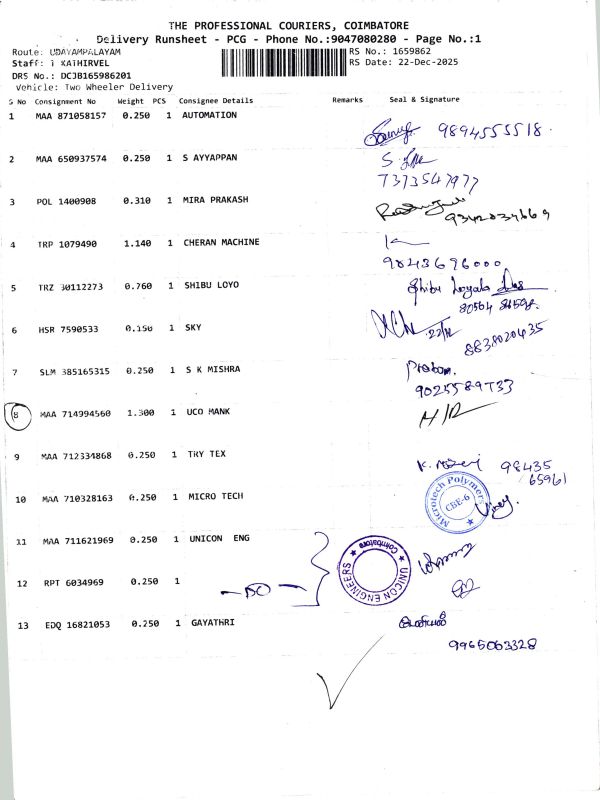 THE PROFESSIONAL COURIERS, COIMBATORE
Delivery Runsheet - PCG - Phone No.:9047080280 - Page No.:1
Route: UDAYAMPALAYAM
RS No.: 1659862
Staff: KATHIRVEL
RS Date: 22-Dec-2025
DRS No.: DCJB165986201
Vehicle: Two Wheeler Delivery
S No Consignment No Weight PCS Consignee Details Remarks Seal & Signature
1 MAA 871058157 0.250 1 AUTOMATION
9894555518.
2 MAA 650937574 0.250 1 S AYYAPPAN
S.
7373547977
3 POL 1400908 0.310 1 MIRA PRAKASH
9342834669
4 TRP 1079490 1.140 1 CHERAN MACHINE
9843696000
5 TRZ 30112273 0.760 1 SHIBU LOYO
Shibu Loyala Das
80564
6 HSR 7590533 0.150 1 SKY
22/12
8838020435
7 SLM 385165315 0.250 1 S K MISHRA
9025589733
8 MAA 714994560 1.300 1 UCO MANK
H/R
9 MAA 712334868 0.250 1 TRY TEX
98435
65961
10 MAA 710328163 0.250 1 MICRO TECH
Microtech Polymers
CBE-6
Vinay.
11 MAA 711621969 0.250 1 UNICON ENG
UNICON ENGINEERS
Coimbatore
12 RPT 6034969 0.250 1
-DO-
13 EDQ 16821053 0.250 1 GAYATHRI
9965063328